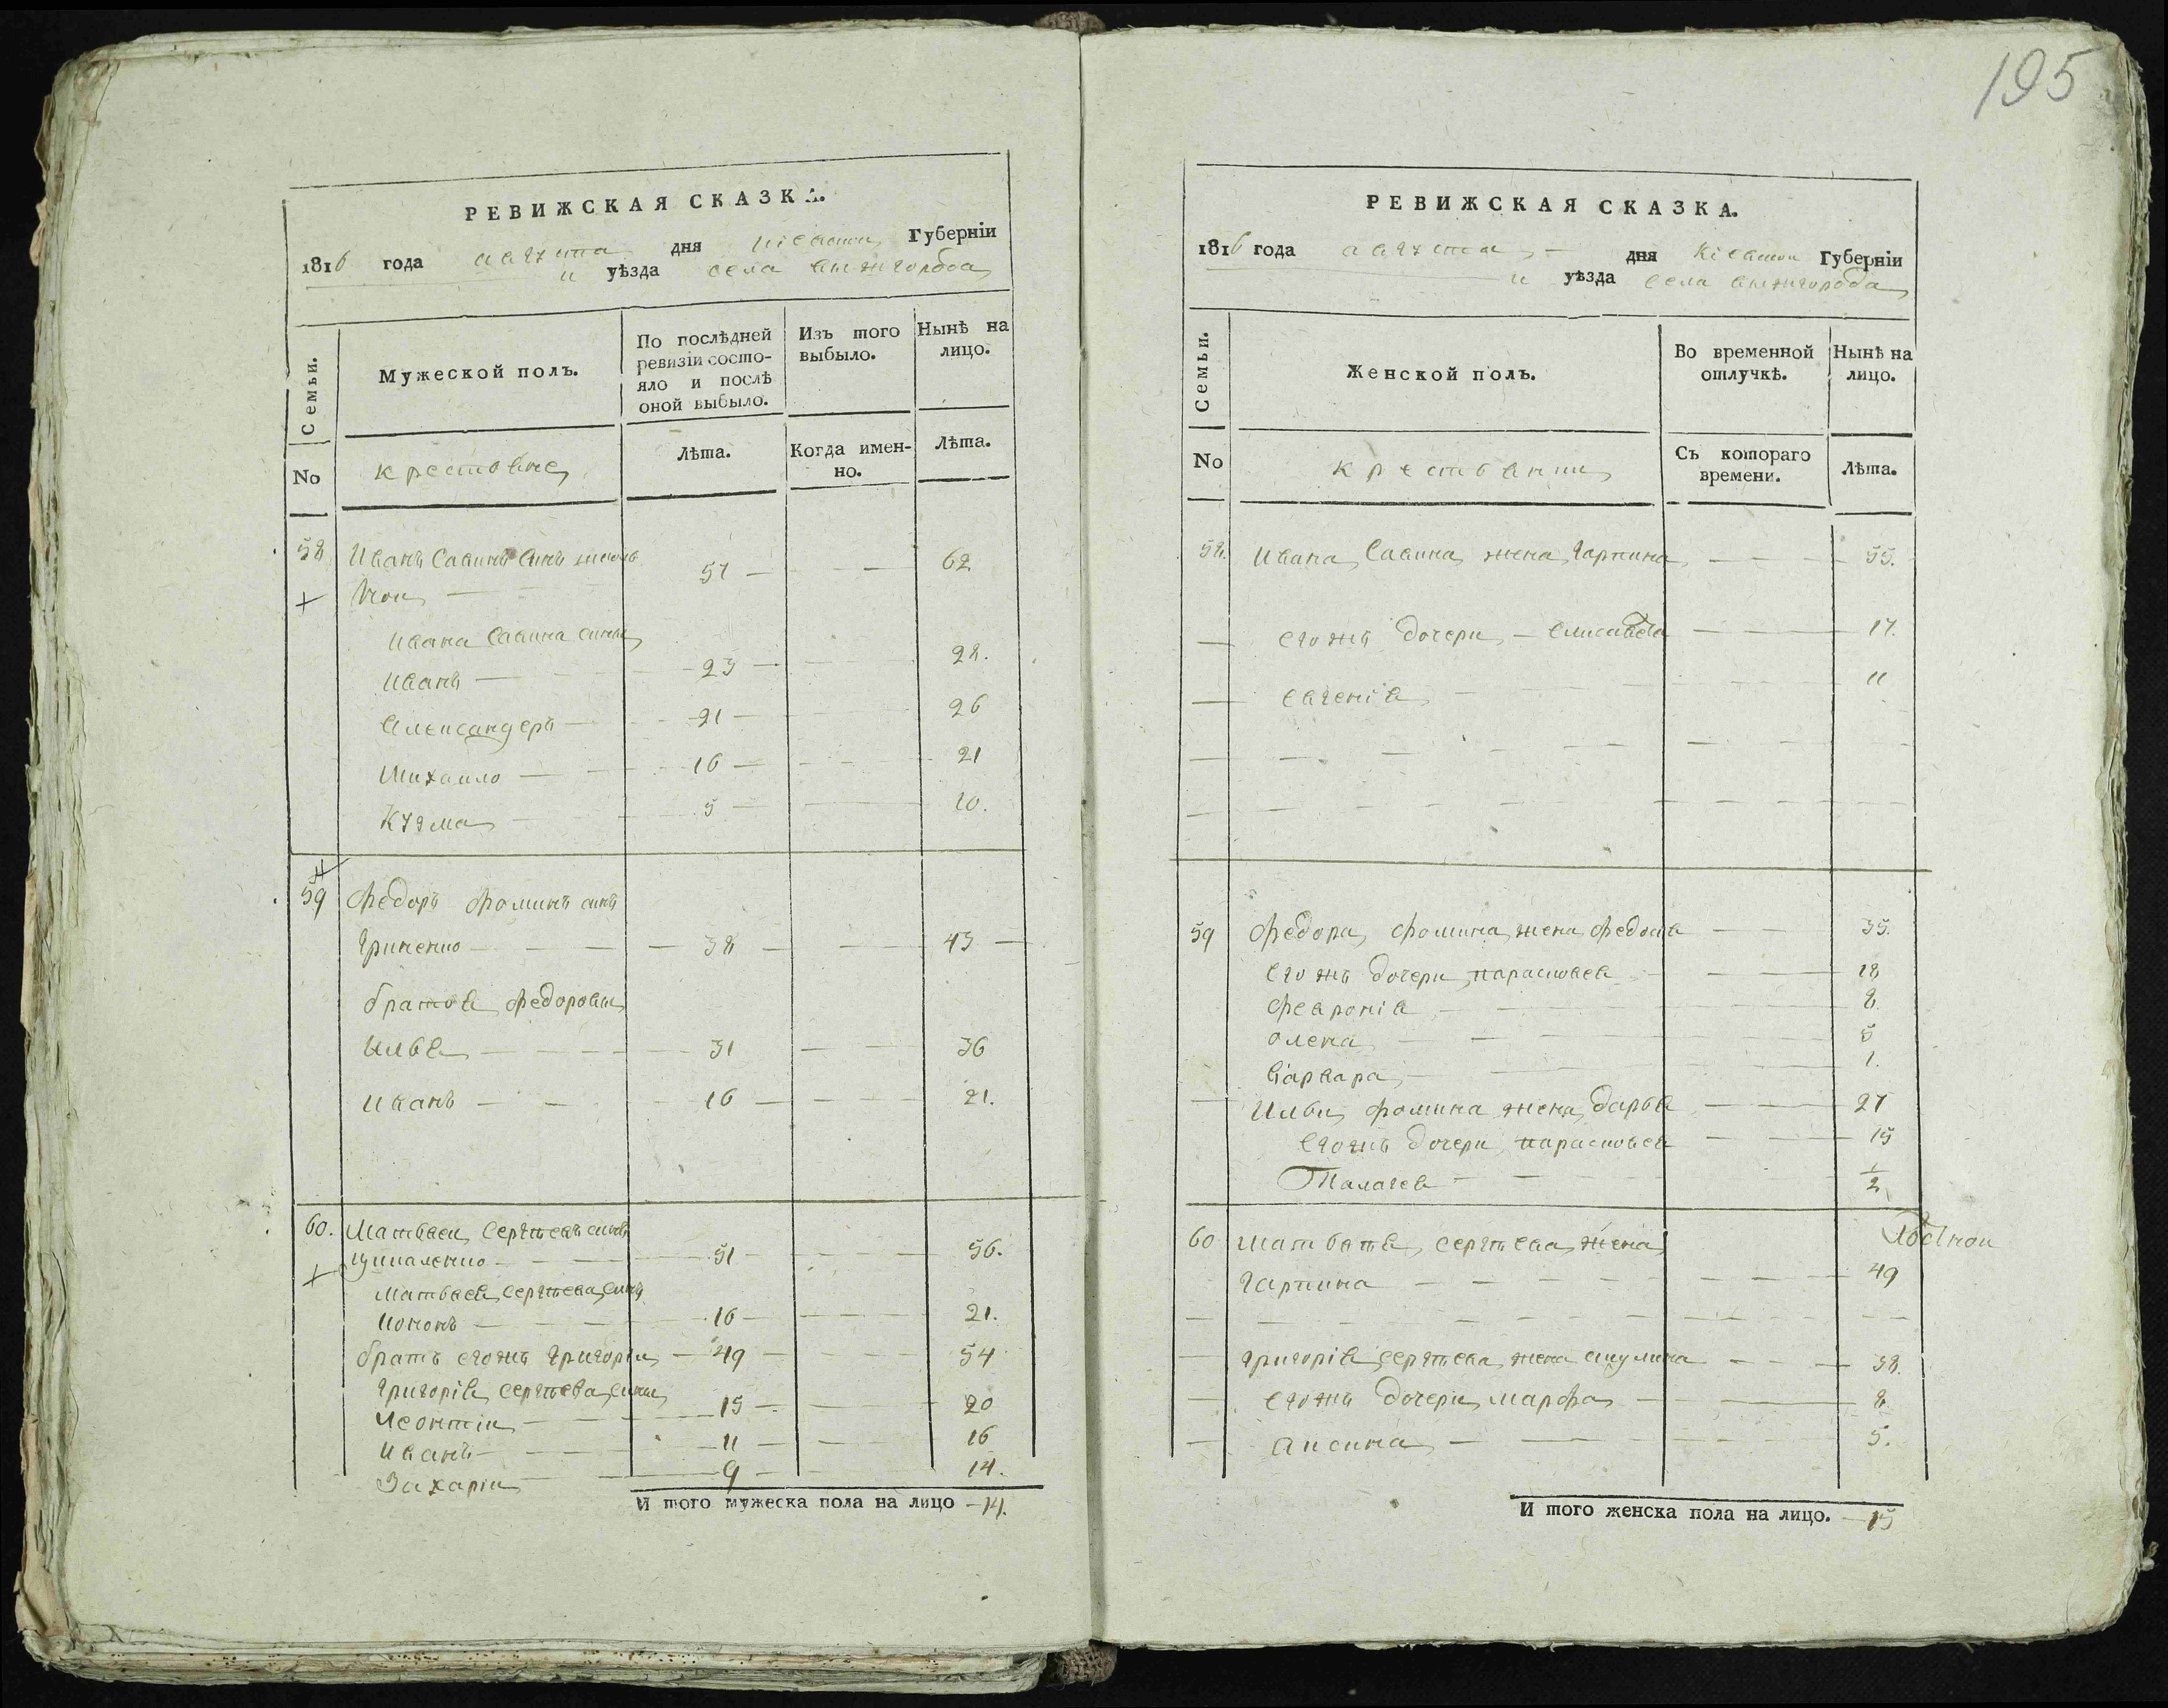 195
РЕВИЖСКАЯ СКАЗКА.
1816 года августа дня Кіевской Губерніи
и уѣзда села
Семьи.
Мужеской полъ.
По послѣдней ревизіи состояло и послѣ оной выбыло.
Изъ того выбыло.
Нынѣ на лицо.
No
крестьяне
Лѣта.
Когда именно.
Лѣта.
58 Иванъ Савинъ синъ
57 — — 62
Ивана Савина сины
Иванъ — 23 — 28.
Александеръ — 21 — 26
Михаило — 16 — 21
Кузма — 5 — 10.
59 Федоръ Фоминъ синъ
Гриненко — 38 — 43
братья Федоровы
Илья — 31 — 36
Иванъ — 16 — 21.
60. Матвѣи Сергѣевъ синъ
— 51 — 56.
Матвея Сергѣева синъ
Кононъ — 16 — 21.
братъ егожъ Григоріи — 49 — 54
Григорія Сергѣева сины
Леонтіи — 15 — 20
Иванъ — 11 — 16
Захаріи — 9 — 14.
И того мужеска пола на лицо — 14.
РЕВИЖСКАЯ СКАЗКА.
1816 года августа — дня Кіевской Губерніи
и уѣзда села
Семьи.
Женской полъ.
Во временной отлучкѣ.
Нынѣ на лицо.
No
крестьянки
Съ котораго времени.
Лѣта.
58. Ивана Савина жена Гарпина — 55.
егожъ дочери — Елисавета — 17.
Евгенія — 11
59 Федора Фомина жена Федосья — 35.
егожъ дочери парасковея — 18
Февронія — 8
олена — 5
Варвара — 1.
Ильи Фомина жена Дарья — 27
егожъ дочери парасковея — 15
Палагея — 1/2
60 Матвѣя Сергѣева жена
Гарпина — 49
Григорія Сергѣева жена акулина — 38.
егожъ дочери марфа — 8
Аксина — 5.
И того женска пола на лицо. — 15